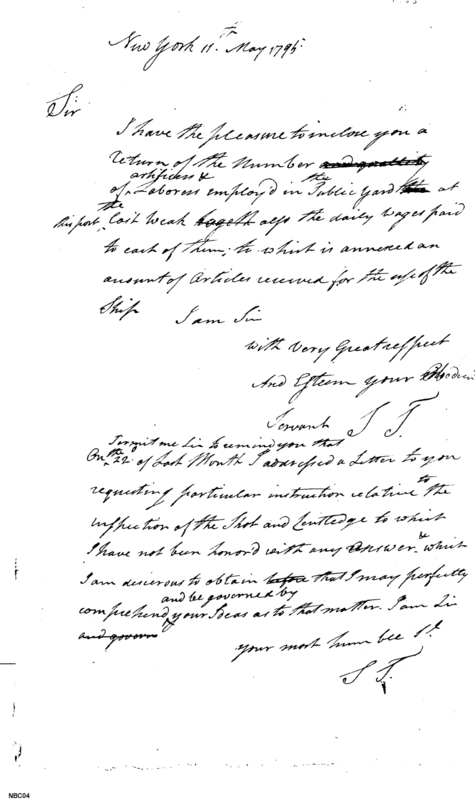 New York 11.th May 1795.
Sir
I have the pleasure to inclose you a
return of the number and quallity
artificers &
of Laborers employ'd in the Public yard the at
this port the last Weak togeth also the daily wages paid
to each of them; to which is annexed an
amount of Articles received for the use of the
Ship
I am Sir
with Very Great respect
And Esteem your Obedien
Servant S T.
Permit me Sir to remind you that
On the 22d of Last Month I addressed a Letter to you
requesting particular instruction relative to the
inspection of the Shot and Kentledge to which
I have not been honor'd with any answer. & which
I am desierous to obtain before that I may perfectly
and be governed by
comprehend your Ideas as to that matter. I am Sir
and govern
your most hum bee St
S T.
NBC04